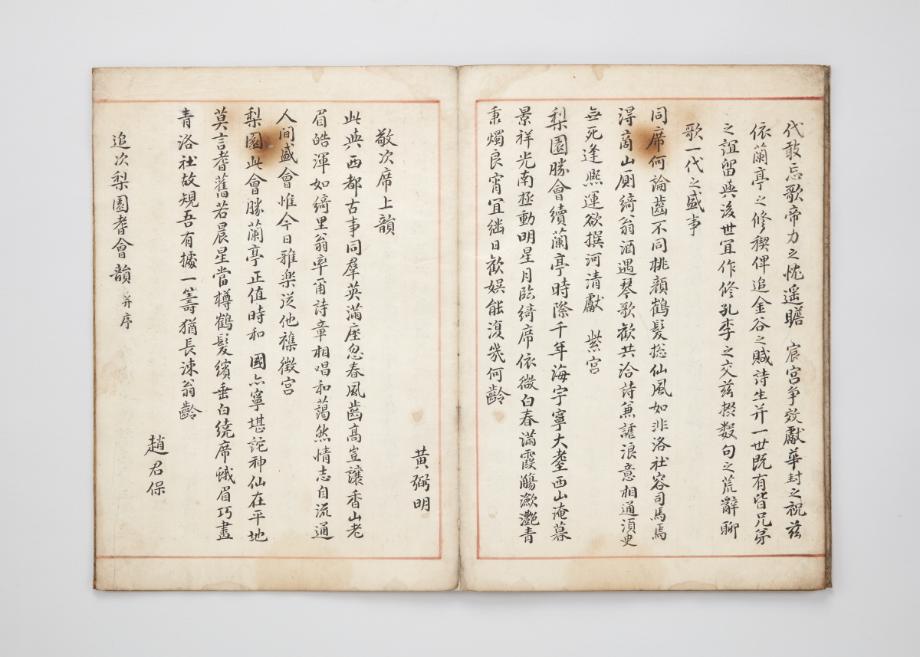 代敢忘歌帝力之忱遙瞻 宸宮爭效獻華封之祝玆
依蘭亭之修稧俾追金谷之賦詩生并一世旣有皆兄弟
之誼留與後世宜作修孔李之交玆掇数句之荒辭聊
歌一代之盛事
同席何論齒不同桃顔鶴髮捴仙風如非洛社容司馬焉
得商山厠綺翁酒遇琴歌歡共洽詩兼謔浪意相通湏史
無死逢熙運欲撰河清獻 紫宮
梨園勝會續蘭亭時際千年海宇寧大耋西山淹暮
景祥光南極動明星月臨綺席依微白春滿霞觴瀲灔青
秉燭良宵宜繼日歡娱能復幾何齡
黃弼明
敬次席上韻
此與西都古事同羣英滿座忽春風齒高豈讓香山老
眉皓渾如綺里翁率爾詩章相唱和藹然情志自流通
人間盛會惟今日雅樂從他襍徵宮
梨園此會勝蘭亭正値時和 國亦寧堪詑神仙在平地
莫言耆舊若晨星當樽鶴髮繽垂白繞席蛾眉巧畫
青洛社故規吾有據一籌猶長涑翁齡
趙君保
追次梨園耆會韻 并序